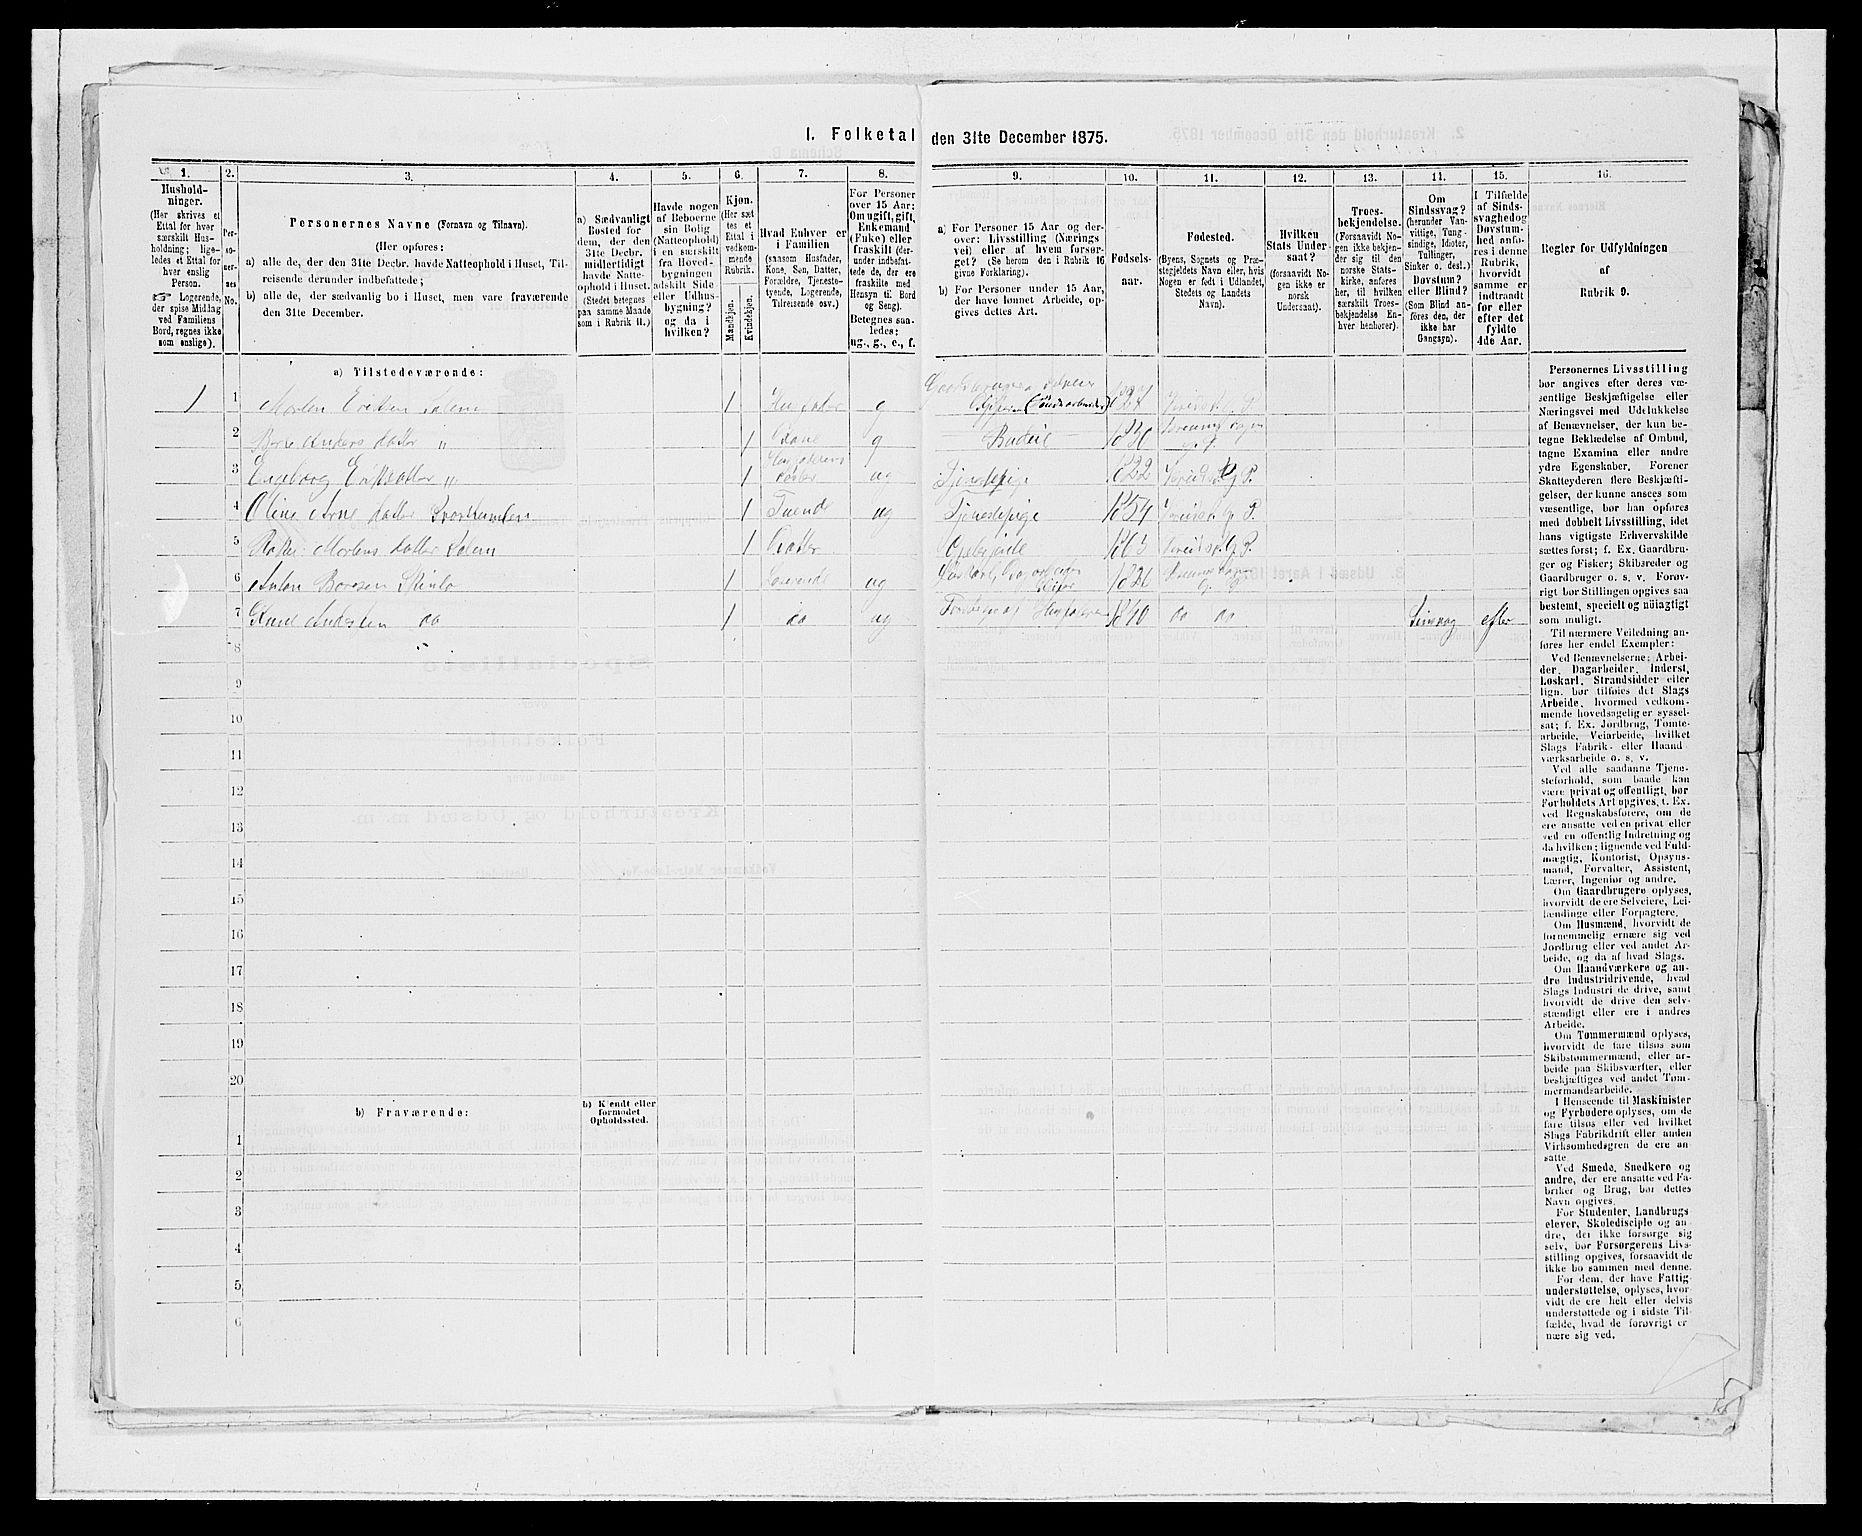 1. Folketal den 31te December 1875.
1.
Hushold-
ninger.
(Her skrives et
Ettal for hver
særskilt Hus-
holdning; lige-
ledes et Ettal for
hver enslig
Person.
☞ Logerende,
der spise Middag
ved Familiens
Bord, regnes ikke
som enslige).
2.
Per-
so-
ner-
nes
No.
3.
Personernes Navne (Fornavn og Tilnavn).
(Her opføres:
a) alle de, der den 31te Decbr. havde Natteophold i Huset, Til-
reisende derunder indbefattede;
b) alle de, der sædvanlig bo i Huset, men vare fraværende
den 31te December.
4.
a) Sædvanligt
Bosted for
dem, der den
31te Decbr.
midlertidigt
havde Natte-
ophold i Huset.
(Stedet betegnes
paa samme Maade
som i Rubrik 11.)
5.
Havde nogen
af Beboerne
sin Bolig
(Natteophold)
i en særskilt
fra Hoved-
bygningen
adskilt Side
eller Udhus-
bygning?
og da i
hvilken?
6.
Kjøn.
(Her sæt
tes et
Ettal i
vedkom-
mende
Rubrik.
Mandkjøn.
Kvindekjøn.
7.
Hvad Enhver er
i Familien
(saasom Husfader,
Kone, Søn, Datter,
Forældre, Tjeneste-
tyende, Logerende,
Tilreisende osv.)
8.
For Personer
over 15 Aar:
Om ugift, gift,
Enkemand
(Enke) eller
fraskilt (der-
under indbefat-
tede de, der ere
fraskilte med
Hensyn til Bord
og Seng).
Betegnes saa-
ledes:
ug., g., e., f.
9.
a) For Personer 15 Aar og der-
over: Livsstilling (Nærings
vei) eller af hvem forsør-
get? (Se herom den i Rubrik 16
givne Forklaring).
b) For Personer under 15 Aar,
der have lønnet Arbeide, op-
gives dettes Art.
10.
Fødsels-
aar.
11.
Fødested.
(Byens, Sognets og Præ-
stegjeldets Navn eller, hvis
Nogen er født i Udlandet,
Stedets og Landets
Navn).
12.
Hvilken
Stats Under-
saat?
(forsaavidt No-
gen ikke er
norsk
Undersaat).
13.
Troes-
bekjendelse.
(Forsaavidt No-
gen ikke bekjen-
der sig til den
norske Stats-
kirke, anføres
her, til hvilken
særskilt Troes-
bekjendelse En-
hver henhører).
14.
Om
Sindssvag?
(herunder Van-
vittige, Tung-
sindige, Idioter,
Tullinger,
Sinker o. desl.)
Døvstum?
eller Blind?
(Som Blind an-
føres den, der
ikke har
Gangsyn).
15.
I Tilfælde
af Sinds-
svaghed og
Døvstum-
hed anfø-
res i denne
Rubrik,
hvorvidt
samme er
indtraadt
før eller
efter det
fyldte
4de Aar.
16.
Regler for Udfyldningen
af
Rubrik 9.
a) Tilstedeværende:
1 1 Morten Eriksen 1 g
2 Anders datter „ 1 Kone g Budeie 1830
3 Engeborg „ 1 ug Tjenestepige 1822
4 Oline Arne datter 1 Tyende ug Tjenestepige 1854
5 Mortens datter 1 Datter 1863
6 Anton 1 Logerende ug 1826
7 Knud Andersen do 1 do ug do do efter
8
9
10
11
12
13
14
15
16
17
18
19
20
b) Fraværende:
b) Kjendt eller
formodet
Opholdssted.
1
2
3
4
5
6
Personernes Livsstilling
bør angives efter deres væ-
sentlige Beskjæftigelse eller
Næringsvei med Udelukkelse
af Benævnelser, der kun be-
tegne Beklædelse af Ombud,
tagne Examina eller andre
ydre Egenskaber. Forener
Skatteyderen flere Beskjæfti-
gelser, der kunne ansees som
væsentlige, bør han opføres
med dobbelt Livsstilling, idet
hans vigtigste Erhvervskilde
sættes først; f. Ex. Gaardbru-
ger og Fisker; Skibsreder og
Gaardbruger o. s. v. Forøv-
rigt bør Stillingen opgives saa
bestemt, specielt og nøiagtigt
som muligt.
Til nærmere Veiledning an-
føres her endel Exempler:
Ved Benævnelserne: Arbei-
der, Dagarbeider, Inderst,
Løskarl, Strandsidder eller
lign. bør tilføies det Slags
Arbeide, hvormed vedkom-
mende hovedsagelig er syssel-
sat; f. Ex. Jordbrug, Tomte-
arbeide, Veiarbeide, hvilket
Slags Fabrik- eller Haand-
værksarbeide o. s. v.
Ved alle saadanne Tjene-
steforhold, som baade kan
være privat og offentligt, bør
Forholdets Art opgives, t. Ex.
ved Regnskabsførere, om de
ere ansatte ved en privat eller
ved en offentlig Indretning og
da hvilken; lignende ved Fuld-
mægtig, Kontorist, Opsyns-
mand, Forvalter, Assistent,
Lærer, Ingeniør og andre.
Om Gaardbrugere oplyses,
hvorvidt de ere Selveiere, Lei-
lændinge eller Forpagtere.
Om Husmænd, hvorvidt de
fornemmelig ernære sig ved
Jordbrug eller ved andet Ar-
beide, og da af hvad Slags.
Om Haandværkere og an-
dre Industridrivende, hvad
Slags Industri de drive, samt
hvorvidt de drive den selv-
stændigt eller ere i andres
Arbeide.
Om Tømmermænd oplyses,
hvorvidt de fare tilsøs som
Skibstømmermænd, eller ar-
beide paa Skibsværfter, eller
beskjæftiges ved andet Tøm-
mermandsarbeide.
I Henseende til Maskinister
og Fyrbødere oplyses, om de
fare tilsøs eller ved hvilket
Slags Fabrikdrift eller anden
Virksomhedsgren de ere an-
satte.
Ved Smede, Snedkere og
andre, der ere ansatte ved Fa-
briker og Brug, bør dettes
Navn opgives.
For Studenter, Landbrugs
elever, Skoledisciple og an-
dre, der ikke forsørge sig
selv, bør Forsørgerens Livs-
stilling opgives, forsaavidt de
ikke bo sammen med denne.
For dem, der have Fattig-
understøttelse, oplyses, hvor-
vidt de ere helt eller delvis
understøttede og i sidste Til-
fælde, hvad de forøvrigt er-
nære sig ved.